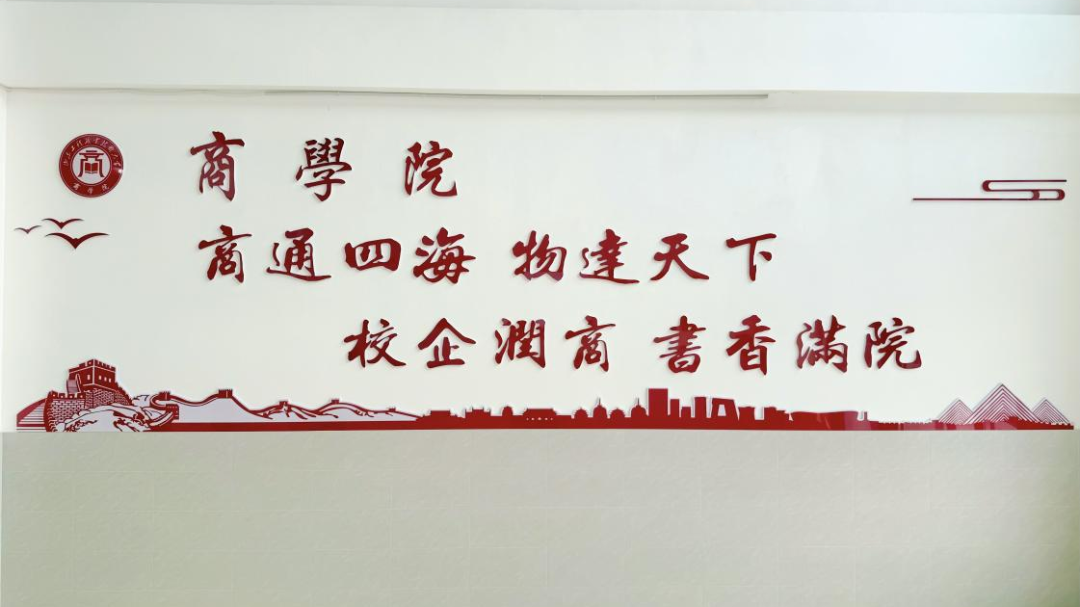 商學院
商通四海 物達天下
校企潤商 書香滿院
商學院